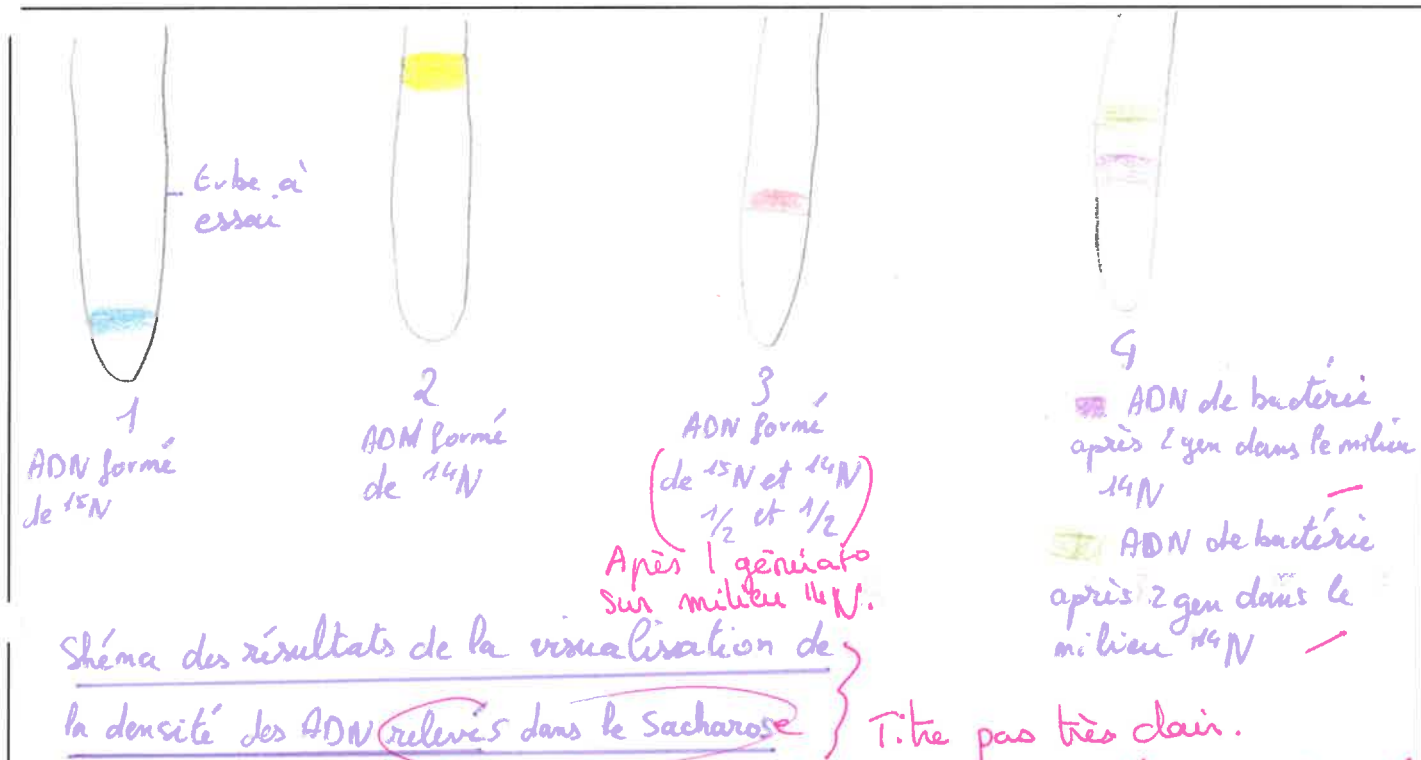 tube à
essai
1
ADN formé
de ¹⁵N
2
ADN formé
de ¹⁴N
3
ADN formé
de ¹⁵N et ¹⁴N
1/2 et 1/2
Après 1 générat°
sur milieu ¹⁴N.
4
ADN de bactérie
après 2 gen dans le milieu
¹⁴N
ADN de bactérie
après 2 gen dans le
milieu ¹⁴N
Shéma des résultats de la visualisation de
la densité des ADN relevés dans le Sacharose
Titre pas très clair.